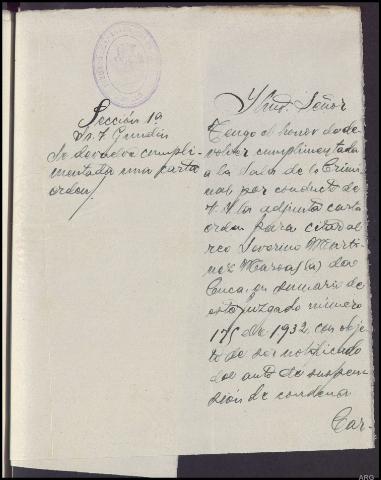 Sección 1ª
Sr. F. Gundín
Se devuelve cumpli-
mentada una carta
orden.
Ilmo. Señor
Tengo el honor de de-
volver cumplimentada
a la Sala de lo Crimi-
nal por conducto de
V. I. la adjunta carta
orden para citar al
reo Severino Martí-
nez Maroas (a) da
Cuca, en sumario de
este Juzgado número
175 de 1932 con obje-
to de ser notificado
del auto de suspen-
sión de condena
Car-
ARG